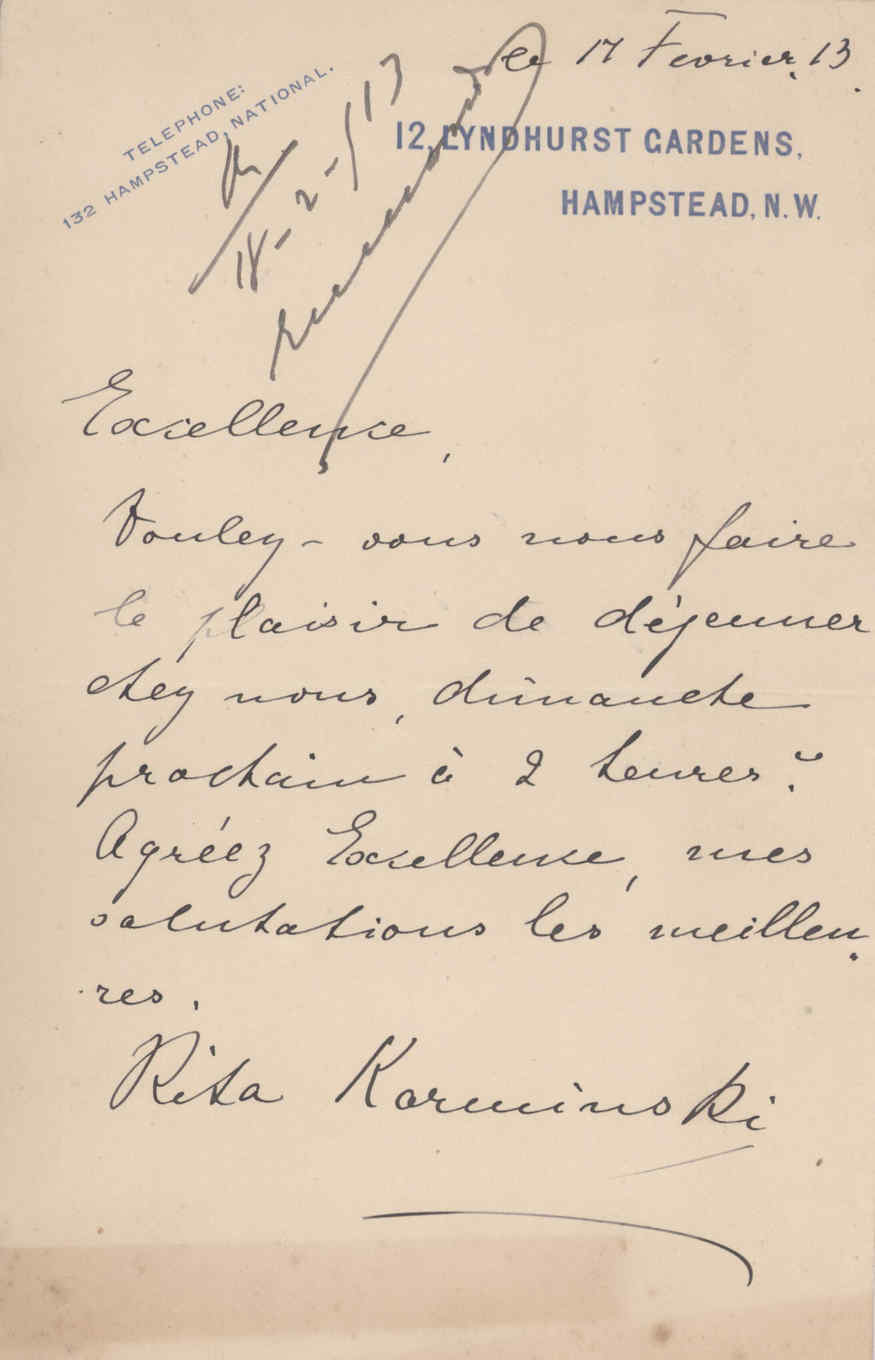 le 17 Fevrier. 13.
TELEPHONE:
132 HAMPSTEAD, NATIONAL.
12, LYNDHURST GARDENS,
HAMPSTEAD, N.W.
18-2-/13
Excellence,
Voulez-vous nous faire
le plaisir de déjeuner
chez nous, dimanche
prochain à 2 heures?
Agréez Excellence, mes
salutations les meilleu
res.
Rita Karminski